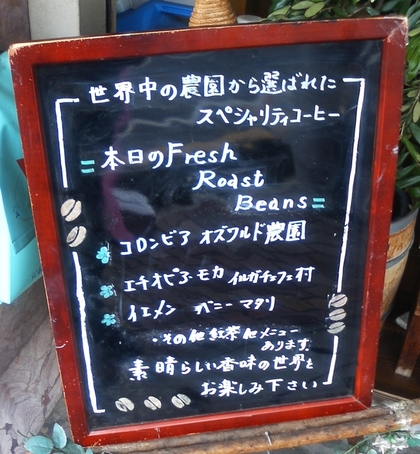 世界中の農園から選ばれた
スペシャリティコーヒー
=本日のFresh
Roast
Beans=
コロンビア オズワルド農園
エチオピア・モカ イルガチェフェ村
イエメン バニーマタリ
・その他紅茶他メニュー
あります
素晴らしい香味の世界を
お楽しみ下さい